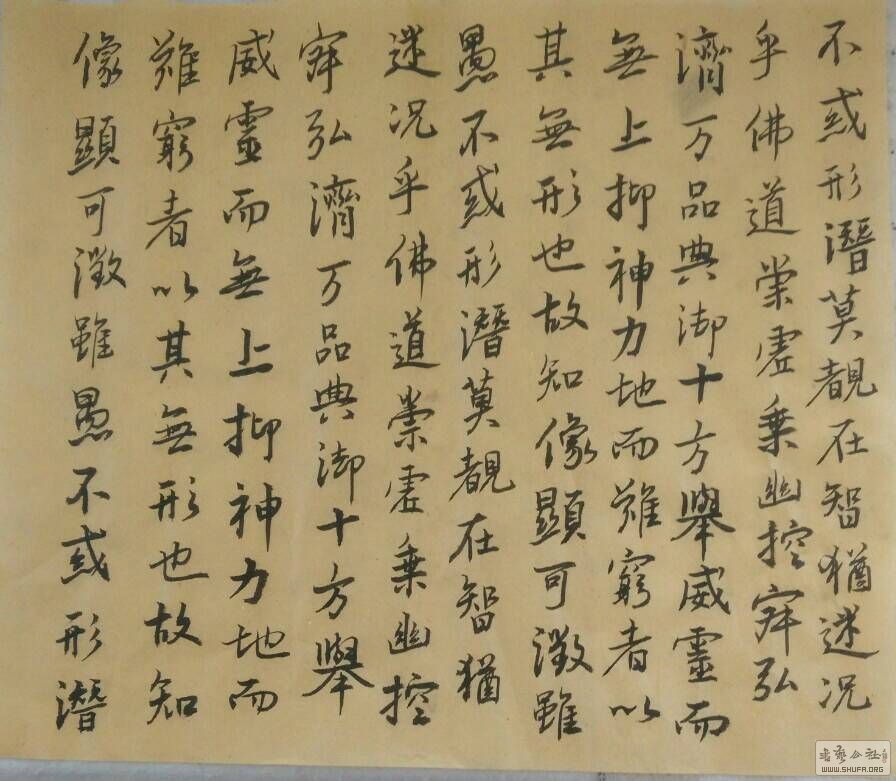 不惑形潛莫覩在智猶迷况
乎佛道崇虛乘幽控寂弘
濟万品典御十方舉威靈而
無上抑神力地而難窮者以
其無形也故知像顯可徵雖
愚不惑形潛莫覩在智猶
迷况乎佛道崇虛乘幽控
寂弘濟万品典御十方舉
威靈而無上抑神力地而
難窮者以其無形也故知
像顯可徵雖愚不惑形潛
WWW.SHUFA.ORG